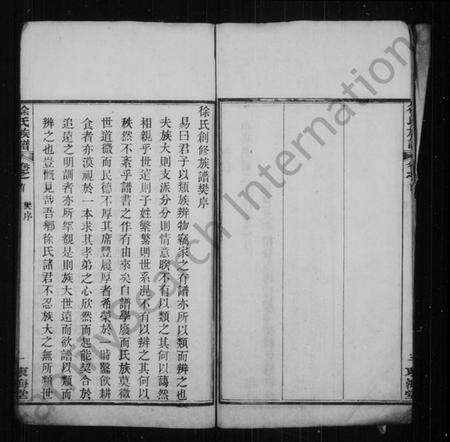 徐氏創修族譜樊序
易曰君子以類族辨物竊家之有譜亦所以類而辨之也
夫族大則支派分分則情意睽不有以類之其何以藹然
相親乎世遠則子姓繁繁則世系混不有以辨之其何以
秩然不紊乎譜書之作有由來矣自譜學廢而氏族莫徵
世道微而民德不厚其席豐履厚者希榮於一時鑿飲耕
食者亦漠視於一本求其孝弟之心欣然而起能契合於
追遠之明訓者亦所罕覯是則族大世遠而欲譜以類而
辨之也豈慨見哉吾鄉徐氏諸君不忍族大之無所類世
徐氏族譜
卷之首
樊序
一
東海堂
FamilySearch International